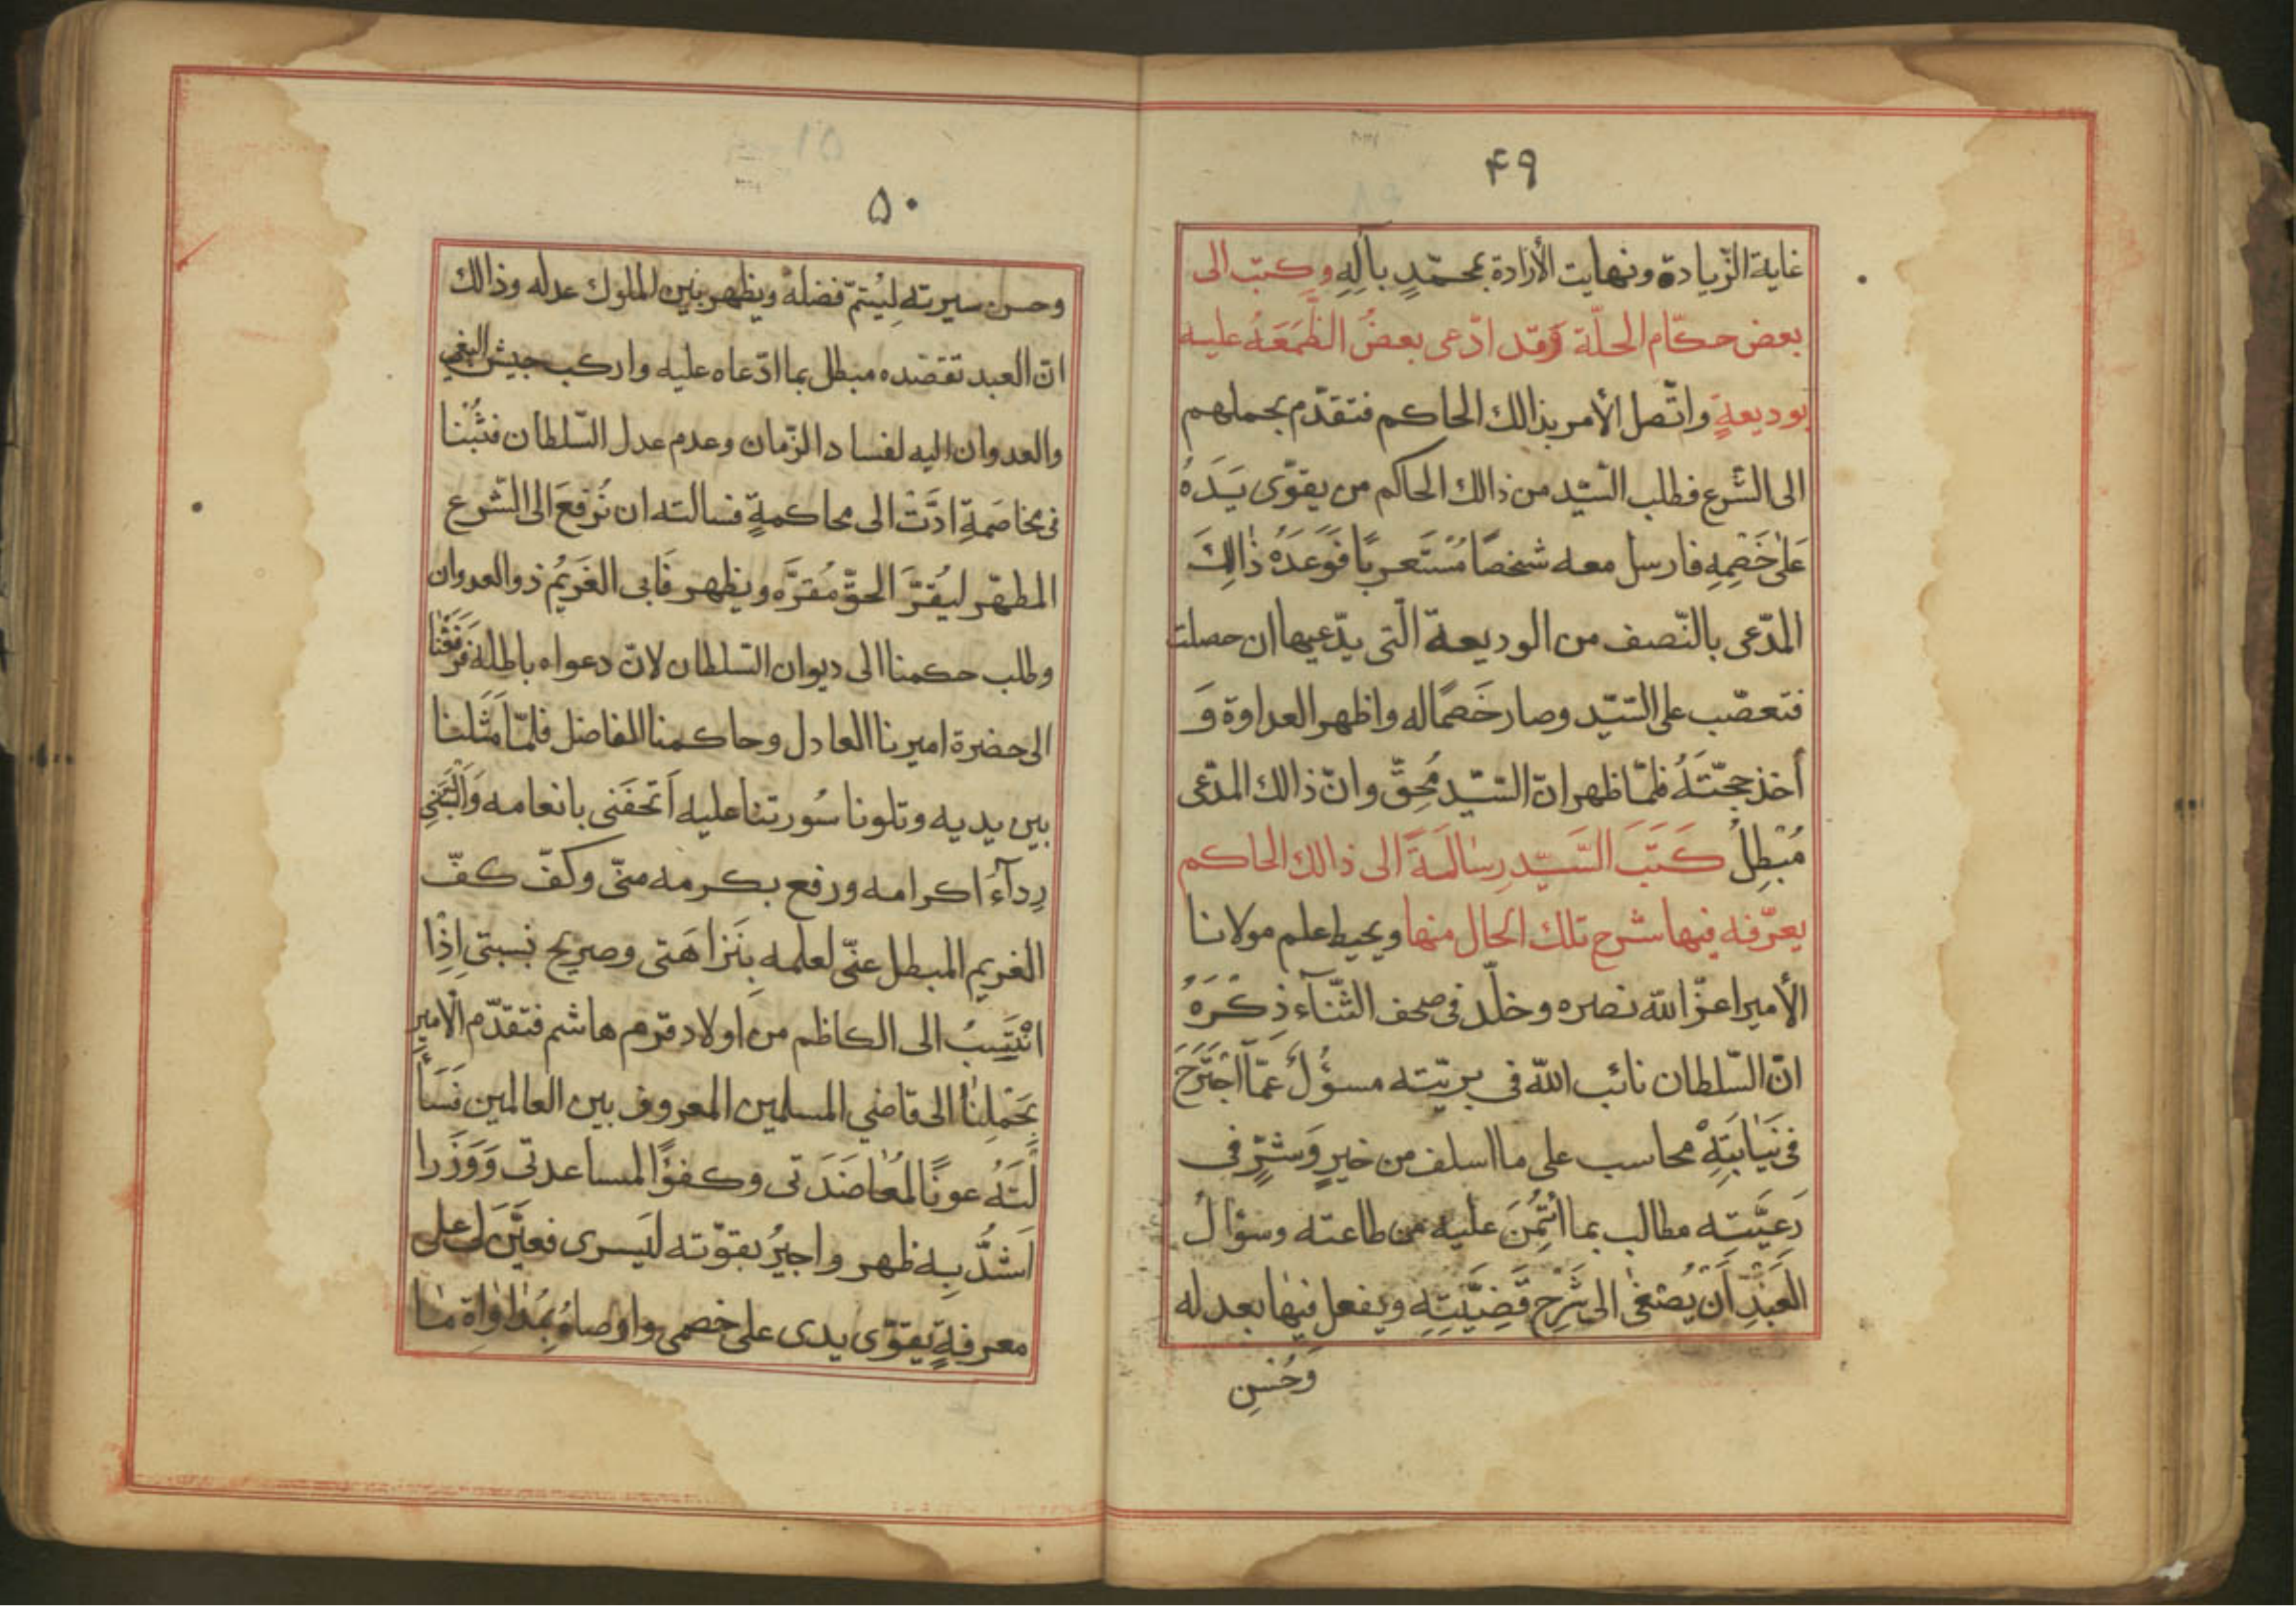 ۴۹
غاية الزّيادة ونهايت الأرادة بمحمّدٍ بآلِهِ وكتب الى
بعض حكّام الحلّة وَقد ادّعى بعضُ الظَّمَعَهُ عليه
بوديعةٍ واتّصل الأمر بذالك الحاكم فتقدّم بحملهم
الى الشّرع فطلب السّيّد من ذالك الحاكم من يقوّى يَدَهُ
عَلٰى خَصْمِهِ فارسل معه شخصًا مُسْتَعربًا فَوَعَدَهُ ذٰالِكَ
المدّعى بالنّصف من الوديعة الّتى يدّعيها ان حصلت
فتعصّب على السّيّد وصار خَصمًا له واظهر العداوة وَ
أخذ حجّتَهُ فلمّا ظهر انّ السّيّد مُحِقّ وانّ ذالك المدّعى
مُبْطِلٌ كَتَبَ السَّيّد رسٰالَةً الى ذالك الحاكم
يعرّفه فيها شرح تلك الحال منها ويحيط علم مولانا
الأمير اعزّ الله نصره وخلّد فى صحف الثّنآء ذِكْرَهُ
انّ السّلطان نائب الله فى بريّته مسؤلٌ عمّا اجْتَرَحَ
فى نِيٰابَتِهِ محاسب على ما اسلف من خيرٍ وَشرٍّ فى
رَعِيَّتِه مطالب بما ائْتُمِنَ عليه من طاعته وسؤال
العَبْدِ أَنْ يُصْغىٰ الى شَرْحِ قَضِيَّتِهِ ويفعل فيهٰا بعدله
وحُسْنِ
۵۰
وحسن سيرته لِيُتمّ فضلهُ ويظهر بين الملوك عدله وذالك
انّ العبد تقصّده مبطل بما ادّعاه عليه واركب جيش البغى
والعدوان اليه لفساد الزّمان وعدم عدل السّلطان فَثُبْنا
فى مخاصَمةٍ ادَّتْ الى محاكمةٍ فسالته ان نُرفعَ الى الشّرع
المطهّر ليُقرَّ الحقّ مُقرَّه ويظهر فَابى الغَريُم ذو العدوان
وطلب حكمنا الى ديوان السّلطان لانّ دعواه باطلة فَرَفَعْنٰا
الى حضرة اميرنا العادل وحاكمنا الفاضل فلمّا مَثَلنا
بين يديه وتلونا سُورتنا عليه اَتحفَنى بانعامه وَاَلْبَسَنِى
رِدآءَ اكرامه ورفع بكرمه منّى وكفّ كفّ
الغريم المبطل عنّى لعلمه بِنَزاهَتى وصريح نسبتى اِذْا
انْتَسِبُ الى الكاظم من اولاد قرم هاشم فتقدّم الامير
بِحَمْلِنٰا الى قاضي المسلمين المعروف بين العالمين فَسَأَ
لْتَهُ عونًا لمُعٰاضَدَتى وكفؤًا لمساعدتى وَوَزَرا
اَشدُّ بِه ظهر واجيرُ بقوّته ليَسرى فعيَّن لى على
معرفةٍ يقوّى يدى على خصمى واوصاهُ بِمُدٰاوٰاة مٰا